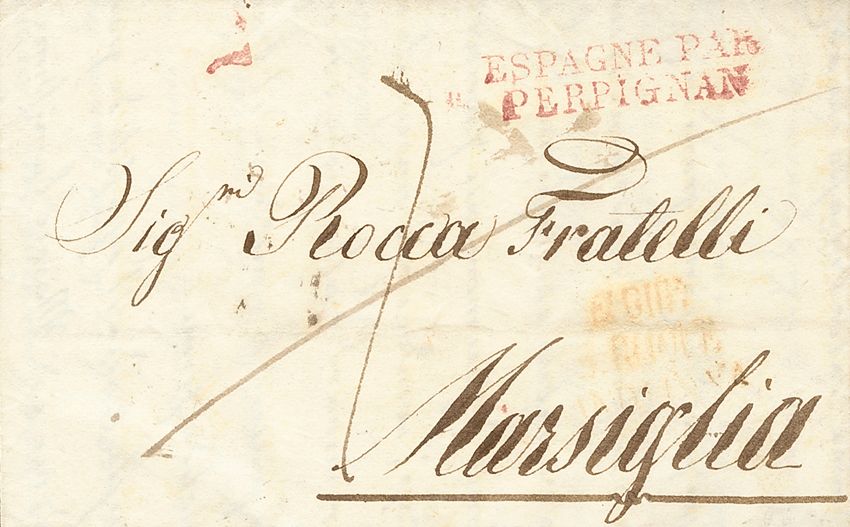 ESPAGNE PAR
PERPIGNAN
Sigri Rocca Fratelli
Marsiglia